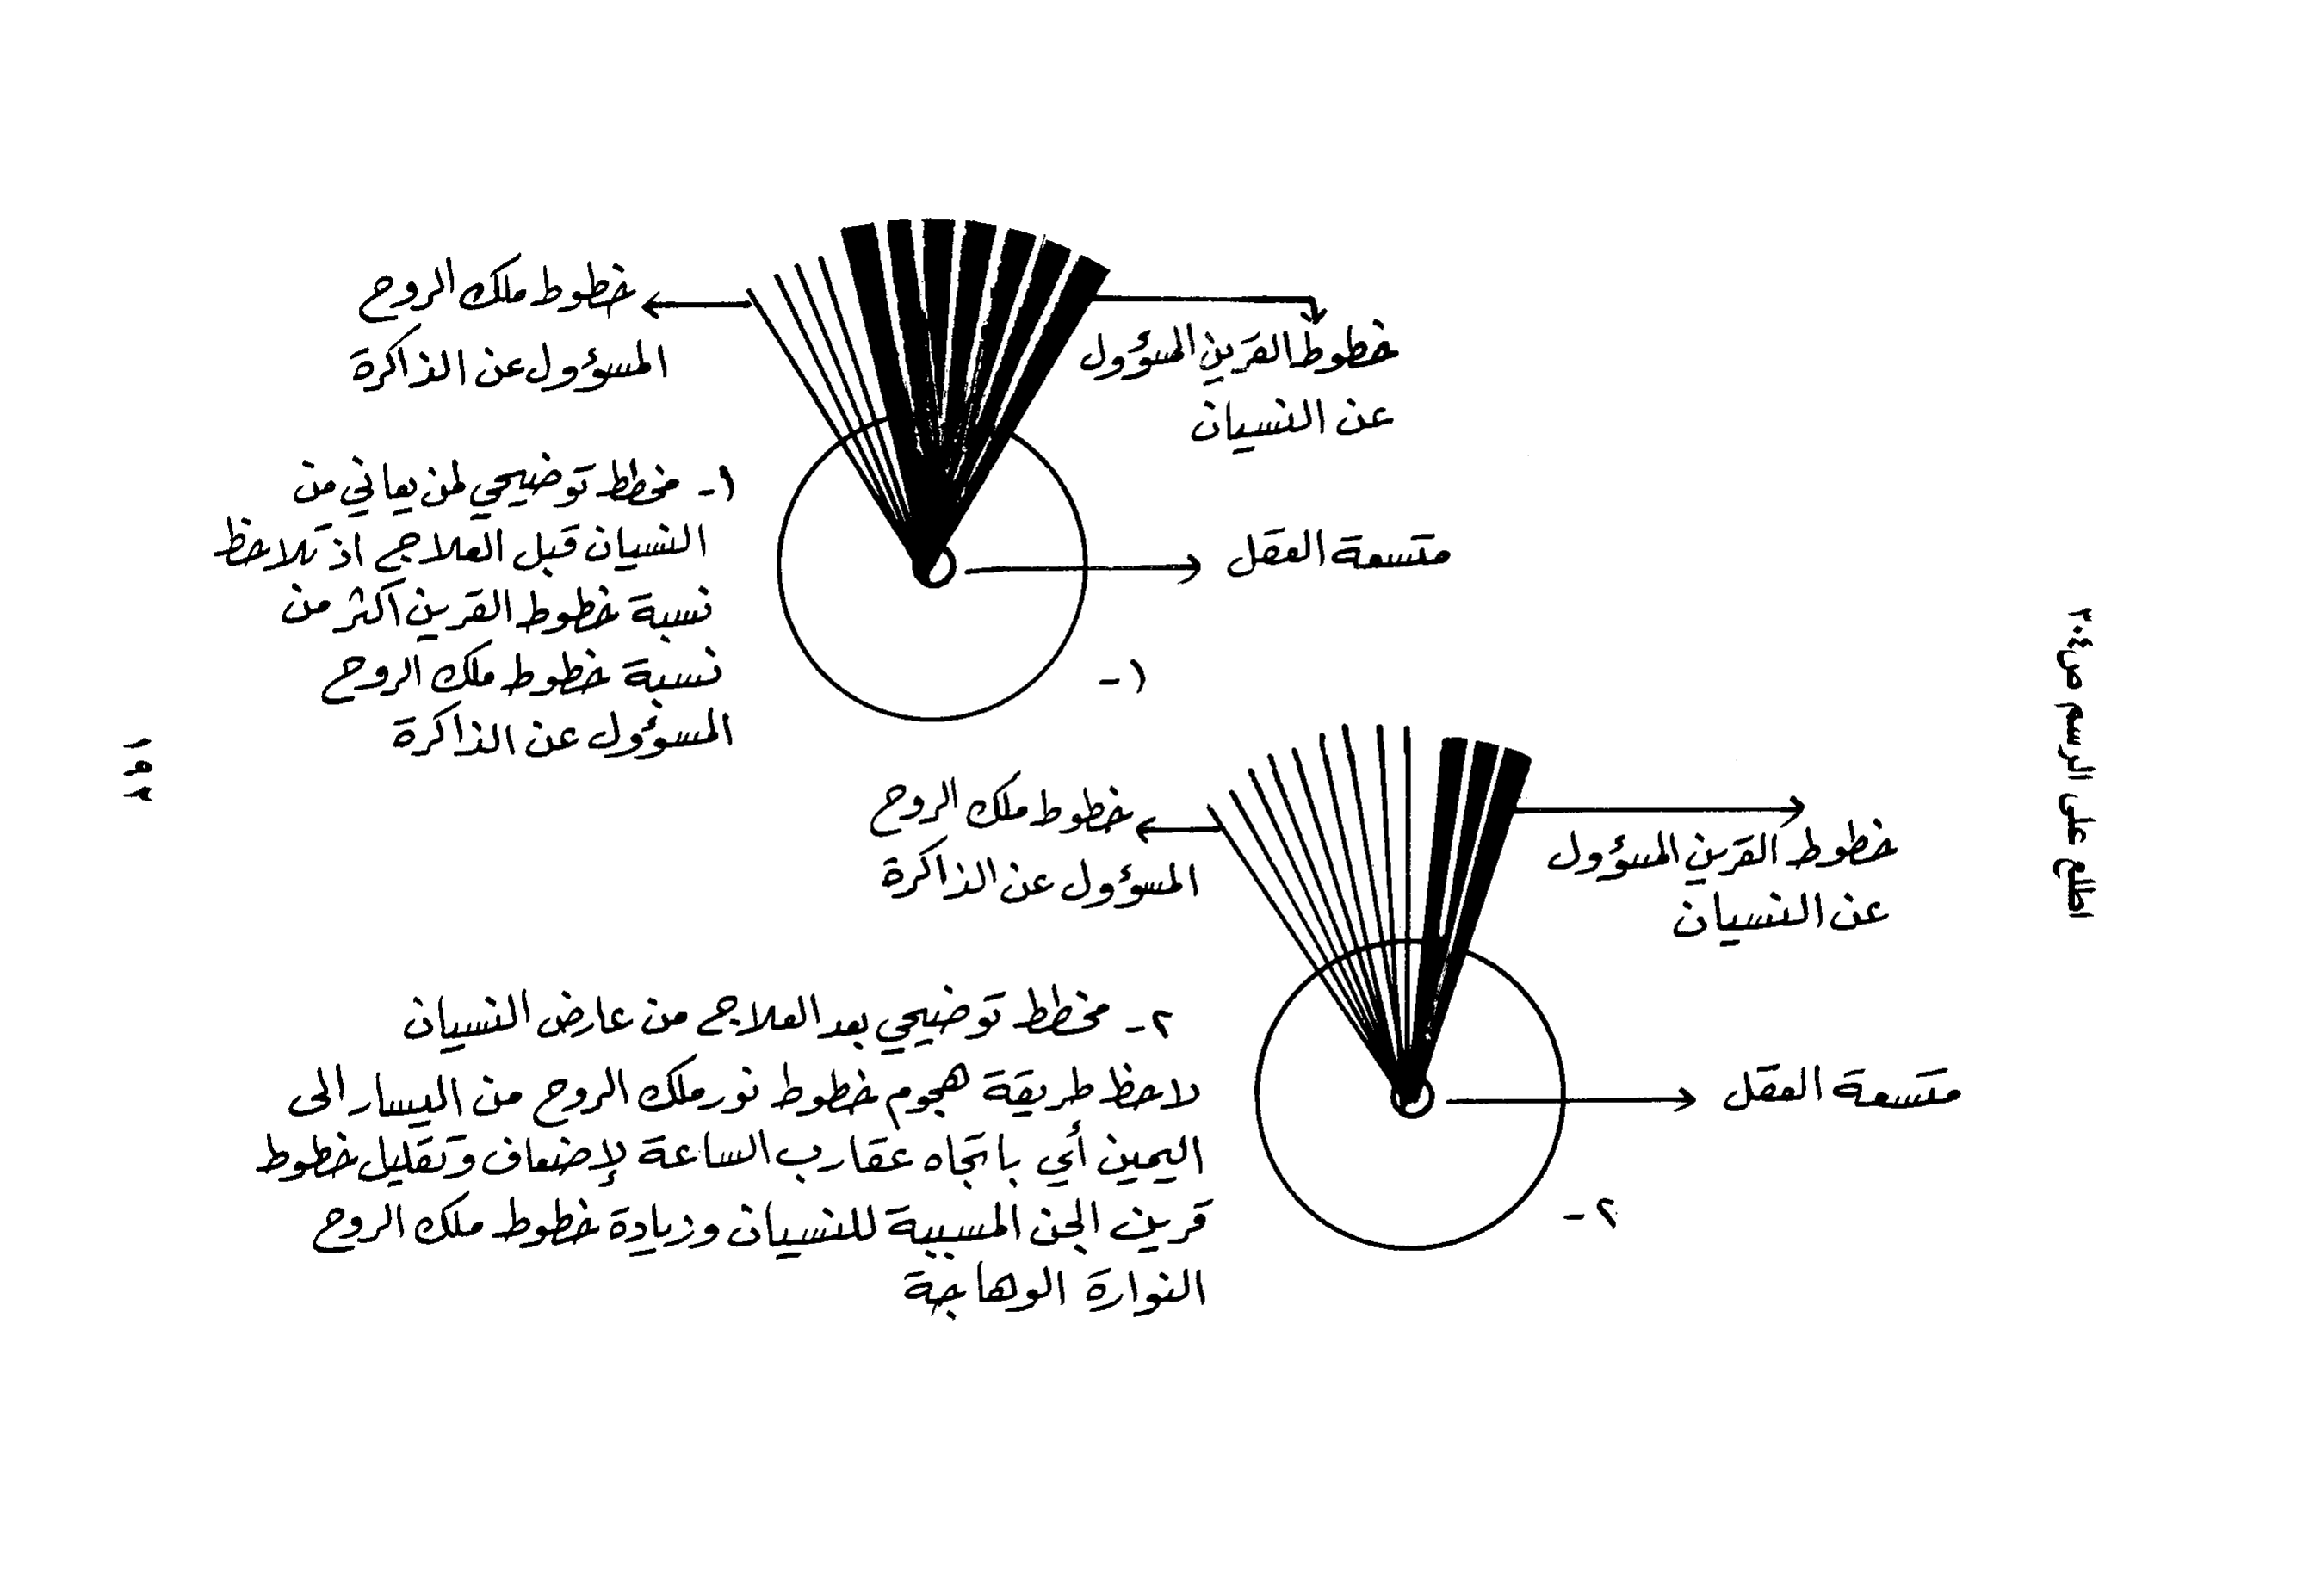 خطوط ملك الروح
المسؤول عن الذاكرة
خطوط القرين المسؤول
عن النسيان
متسعة العقل
١-
١- مخطط توضيحي لمن يعاني من
النسيان قبل العلاج اذ تلاحظ
نسبة خطوط القرين اكثر من
نسبة خطوط ملك الروح
المسؤول عن الذاكرة
خطوط ملك الروح
المسؤول عن الذاكرة
خطوط القرين المسؤول
عن النسيان
متسعة العقل
٢-
٢- مخطط توضيحي بعد العلاج من عارض النسيان
لاحظ طريقة هجوم خطوط نور ملك الروح من اليسار الى
اليمين أي باتجاه عقارب الساعة لإضعاف وتقليل خطوط
قرين الجن المسببة للنسيان وزيادة خطوط ملك الروح
النوارة الوهاجة
اطلع على الرسم
١٩٢